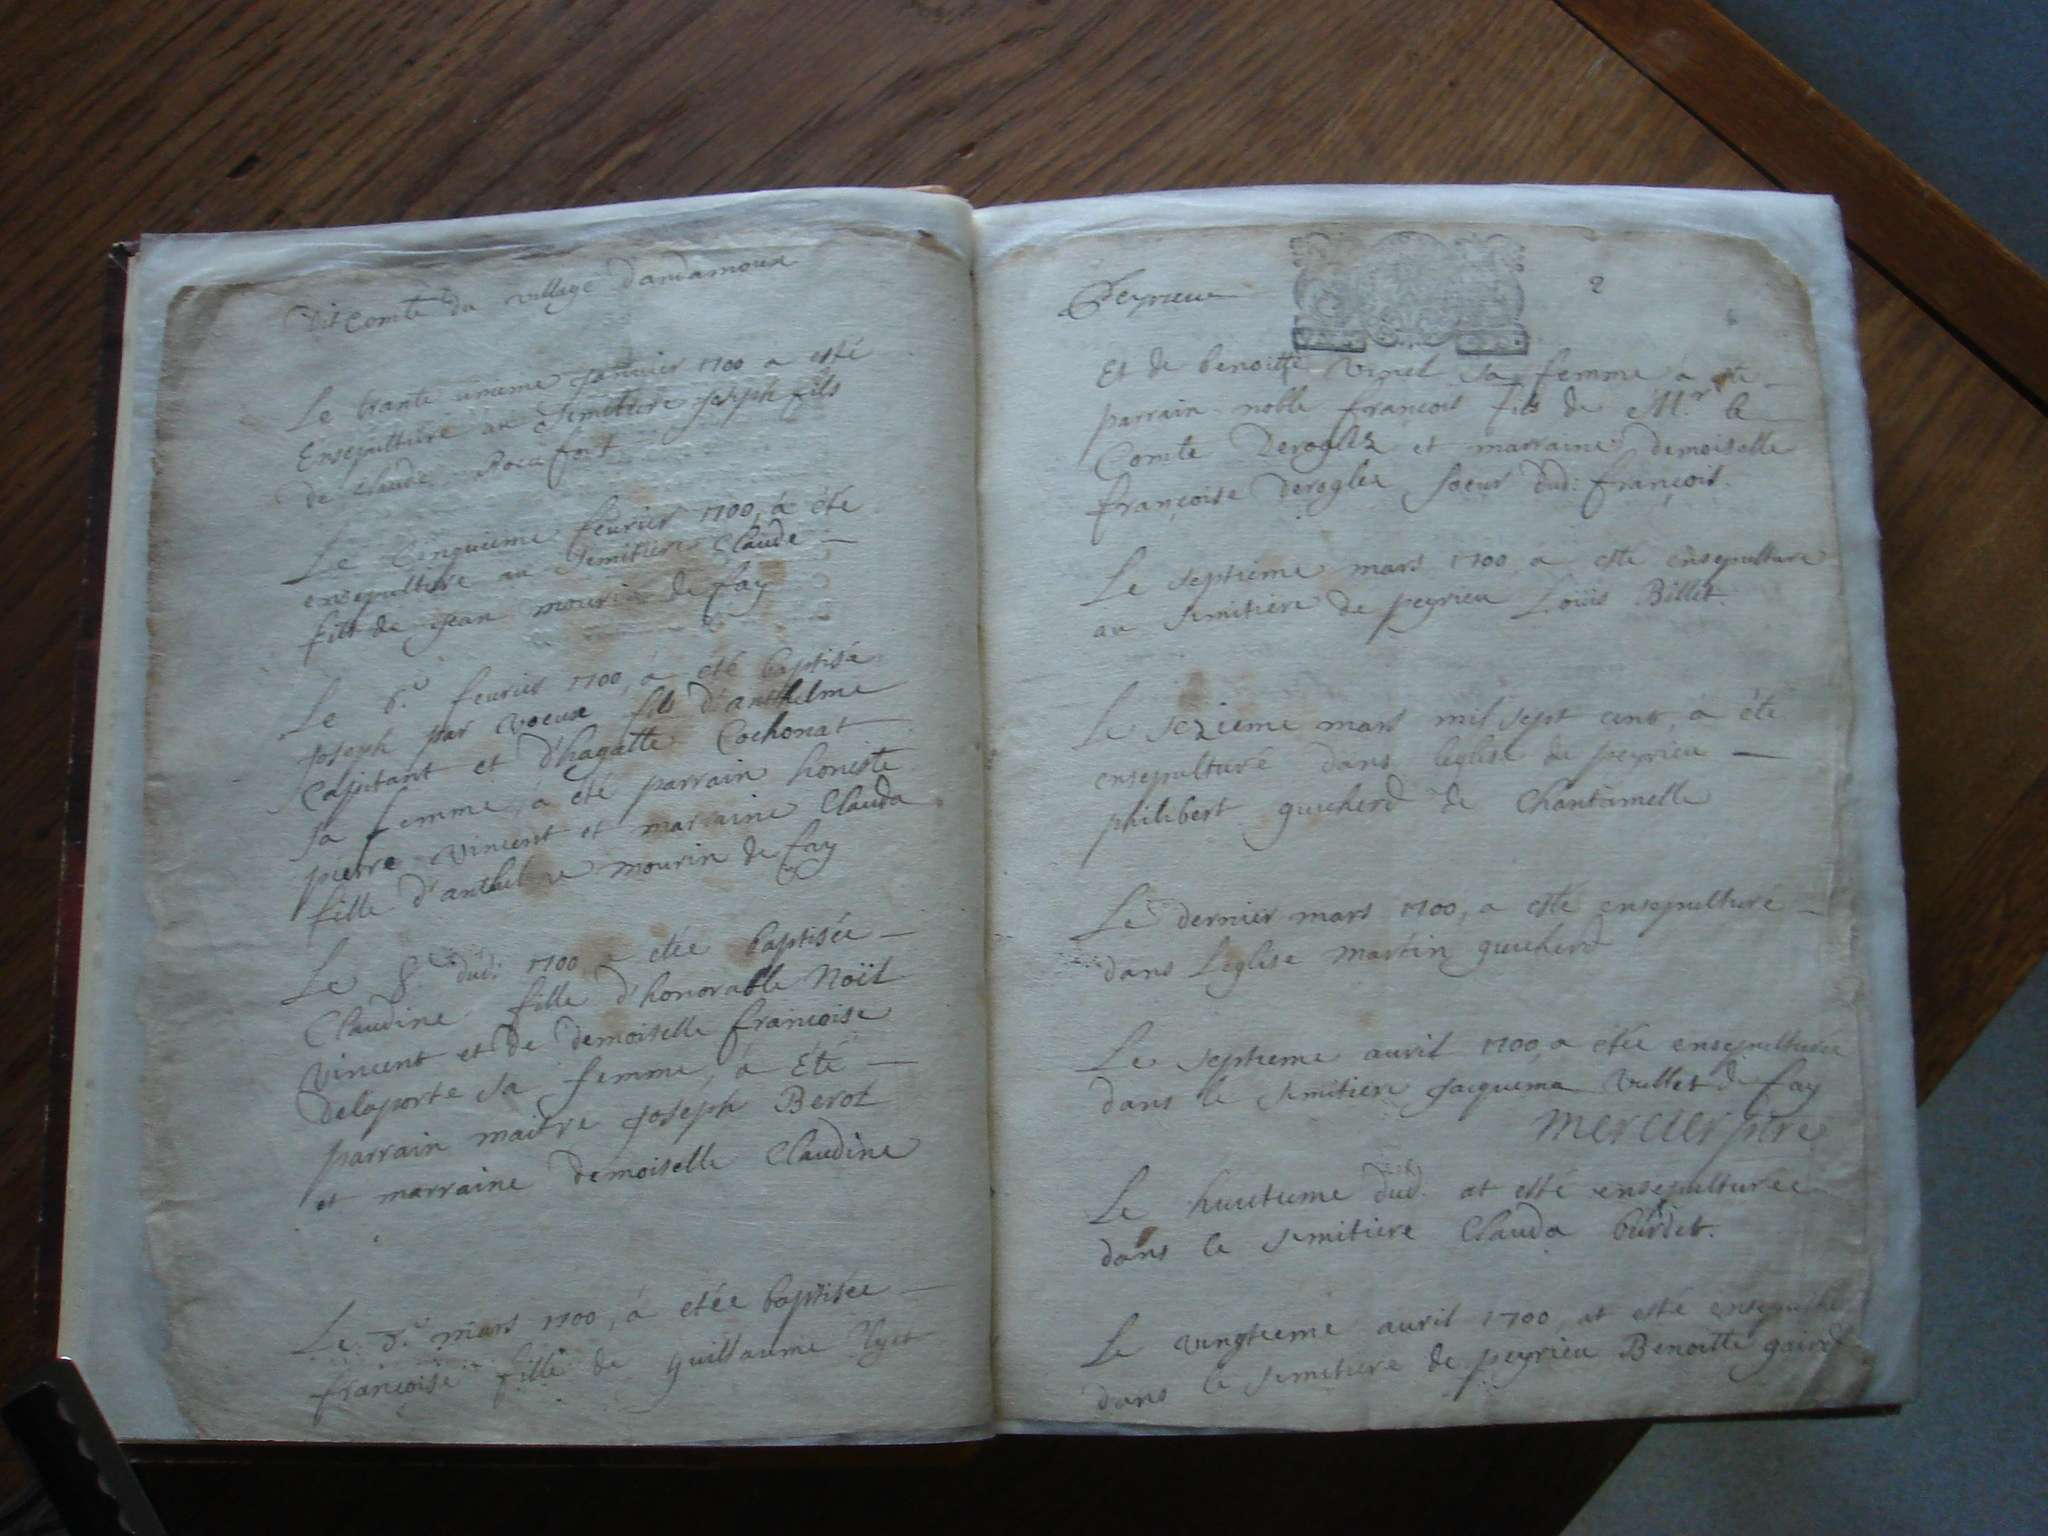 Dit Comte du village Dandamoux
Le trante unieme Janvier 1700 a esté
Ensepulturé au Semitiere Joseph fils
de Claude Rocafort
Le Cinquieme feurier 1700, á été
ensepulturé au Semitiere Claude
fils de Jean mourin de fay
Le 6.e feurier 1700, á été baptisé
Joseph par voeux fils d'anthelme
Capitant et d'hagatte Cochonat
sa femme, á été parrain honeste
pierre vincent et marraine Clauda
fille d'anthelme mourin de fay
Le 8.e dud: 1700 a etée baptisée
Claudine fille d'honorable Noël
vincent et de demoiselle françoise
delaporte sa femme, á Eté
parrain maitre Joseph Berot
et marraine demoiselle Claudine
Le mars 1700, á etée baptisée
françoise fille de guillaume
Peyrieu 2
Et de benoitte vinel sa femme á été
parrain noble françois fils de M.r le
Comte Deroglez et marraine demoiselle
françoise deroglez soeur dud: françois.
Le septieme mars 1700, a esté ensepulturé
au semitiere de peyrieu Loüis Billet.
Le sezieme mars mil sept cent, á été
ensepulturé dans leglise de peyrieu
philibert guicherd de Chantamelle
Le dernier mars 1700, a esté ensepulturé
dans Leglise martin guicherd
Le septieme auril 1700, a étée ensepulturée
dans le semitiere Jacquema vullet de fay
mercier ptre
Le huictieme dud. at esté ensepulturée
dans le semitiere Clauda burdet.
Le vingtieme auril 1700, at esté
dans le semitiere de peyrieu Benoitte